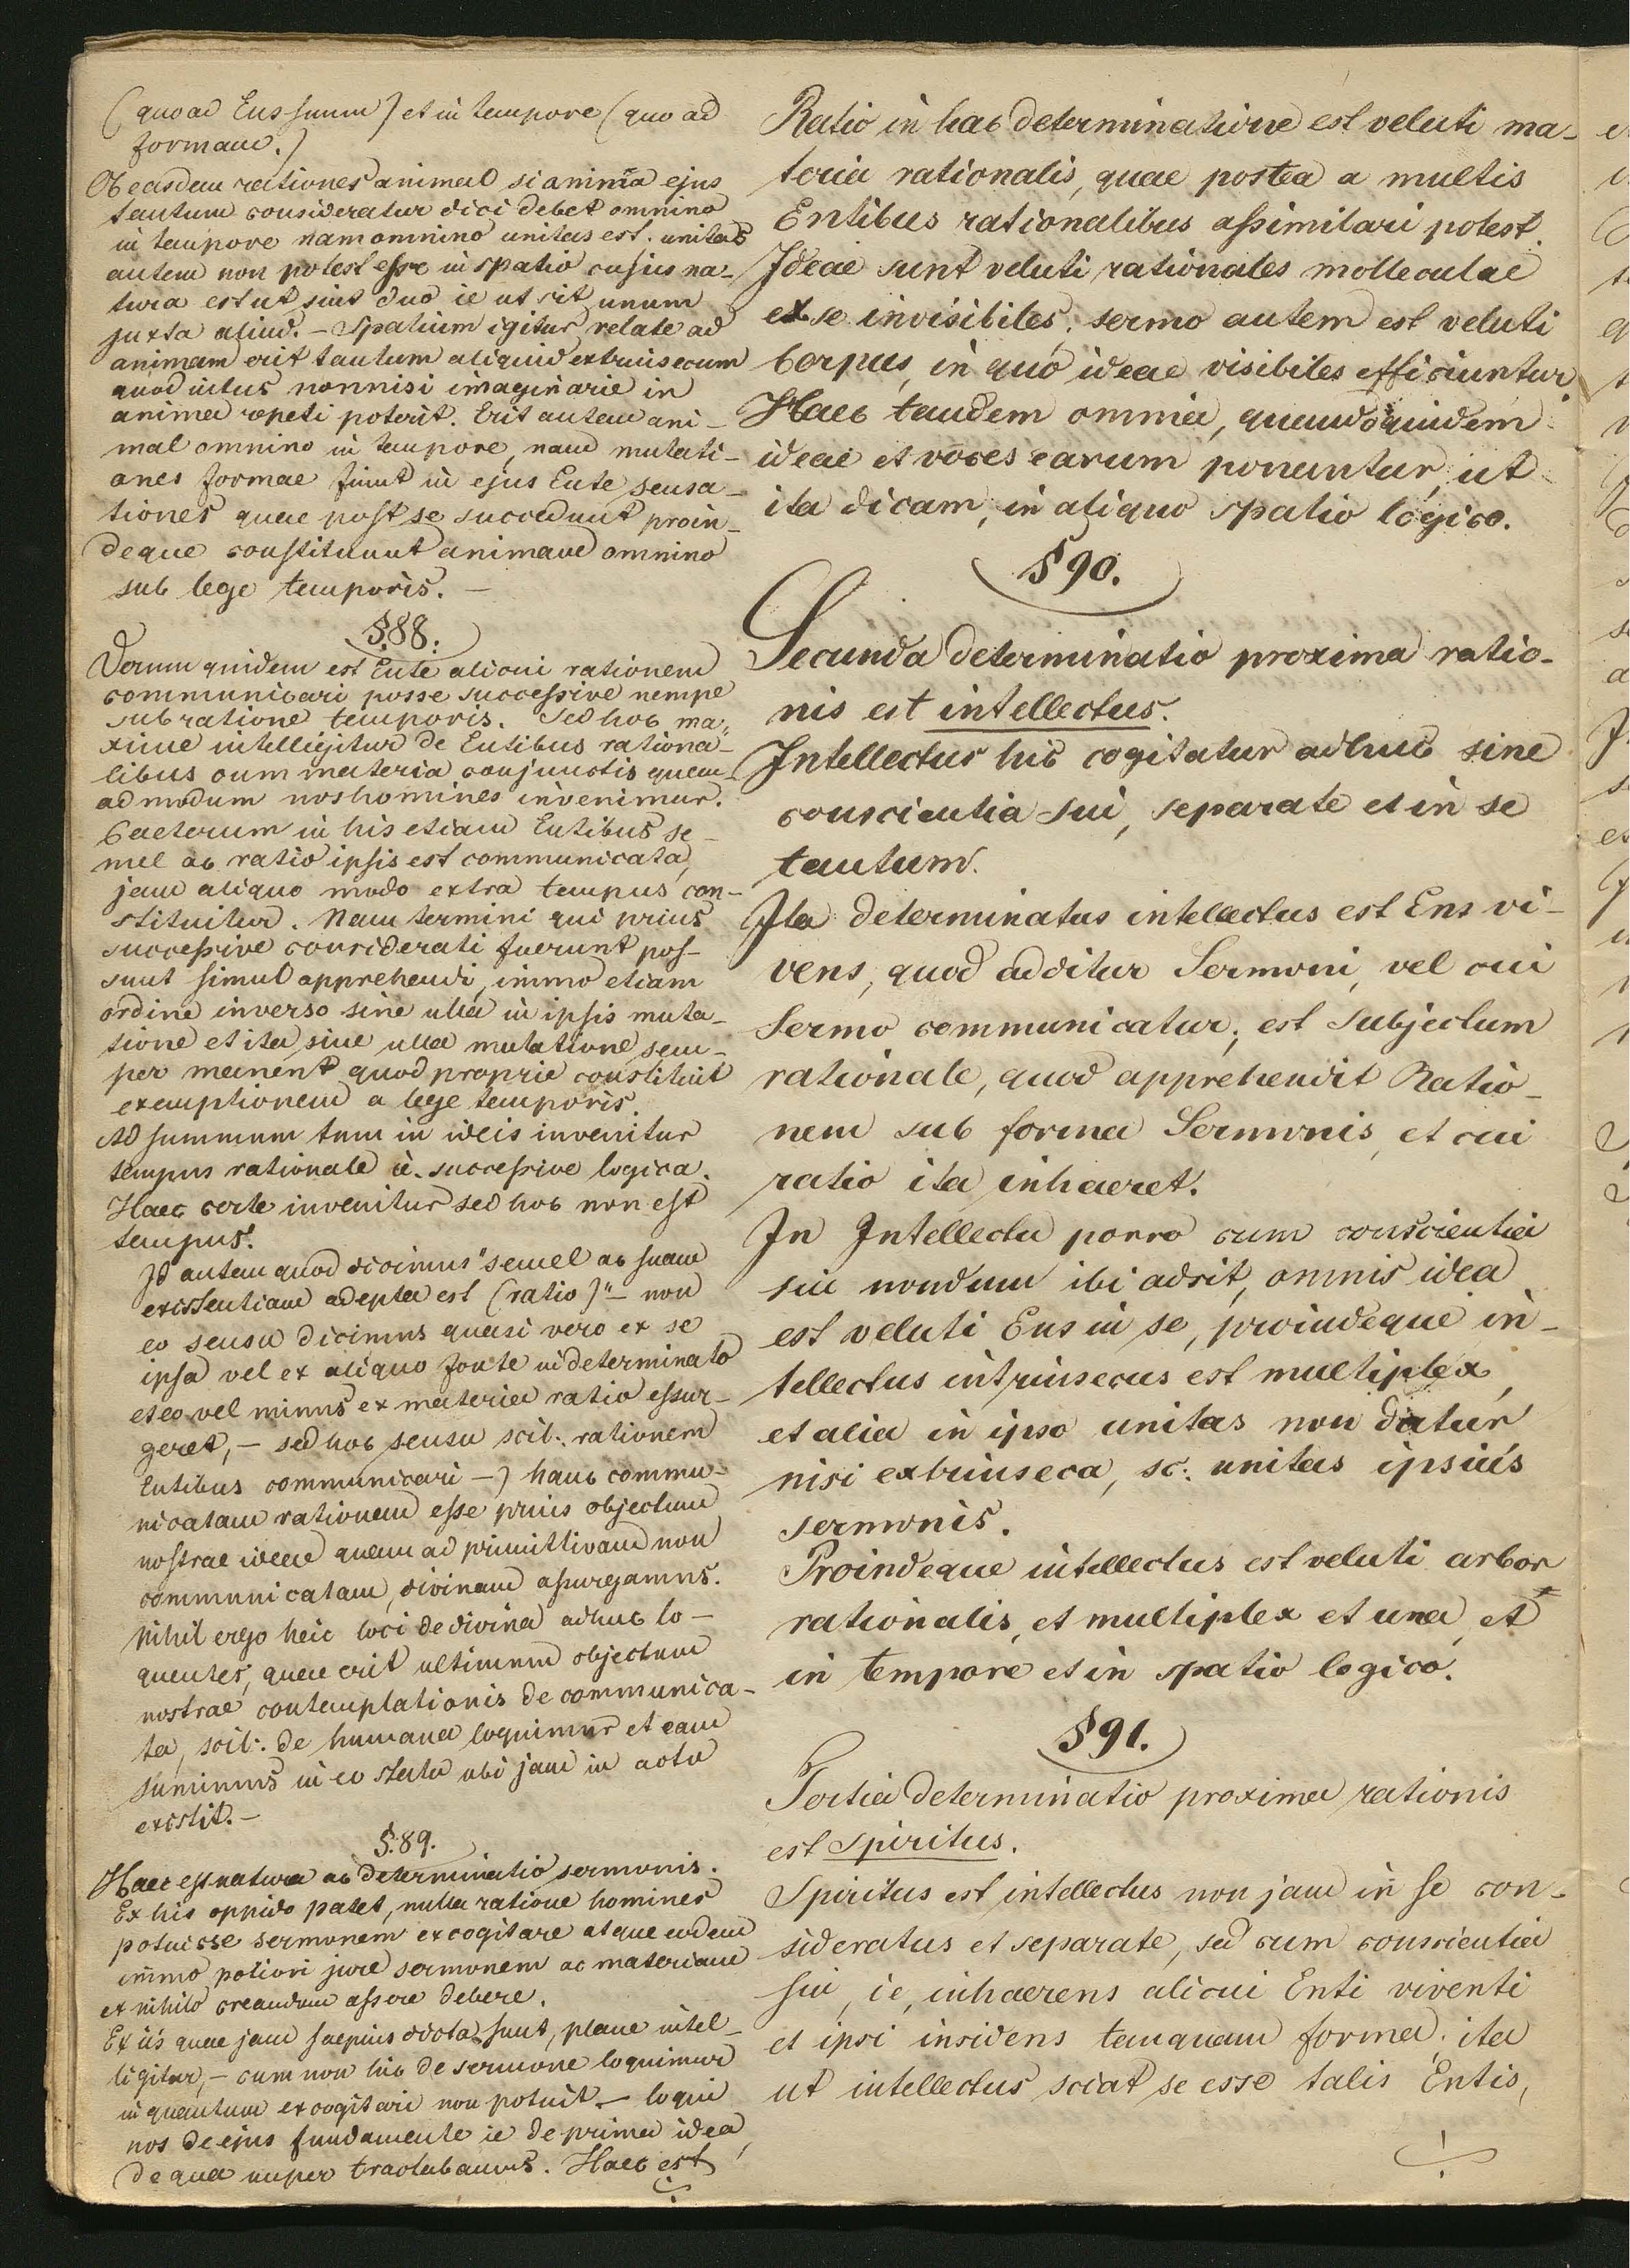 (quoad Ens suum) et in tempore (quo ad
formam.)
Ob easdem rationes animal si anima ejus
tantum consideratur dici debet omnino
in tempore nam omnino unitas est. unitas
autem non potest esse in spatio cujus na-
tura est ut sint duo ie ut sit unum
juxta aliud. – Spatium igitur relate ad
animam erit tantum aliquid extrinsecum
quod intus nonnisi imaginarie in
anima repeti poterit. Erit autem ani-
mal omnino in tempore, nam mutati-
ones formae fiunt in ejus Ente sensa-
tiones quae post se succedunt proin-
deque constituunt animam omnino
sub lege temporis. –
§.88.
Verum quidem est Ente alicui rationem
communicari posse successive nempe
sub ratione temporis. Sed hoc ma-
xime intelligitur de Entibus rationa-
libus cum materia conjunctis quem-
admodum nos homines invenimur.
Caeterum in his etiam Entibus se-
mel ac ratio ipsis est communicata,
jam aliquo modo extra tempus con-
stituitur. Nam termini qui prius
successive considerati fuerunt pos-
sunt simul apprehendi, immo etiam
ordine inverso sine ulla in ipsis muta-
tione et ita sine ulla mutatione sem-
per manent quod proprie constituit
exemptionem a lege temporis.
Ad summum tum in ideis invenitur
tempus rationale ie. successive logica.
Haec certe invenitur sed hoc non est
tempus.
Id autem quod dicimus "semel ac suam
existentiam adepta est (ratio)" – non
eo sensu dicimus quasi vero ex se
ipsa vel ex aliquo fonte indeterminato
et eo vel minus ex materia ratio essur-
geret, – sed hoc sensu scil. rationem
Entibus communicari –) hanc commu-
nicatam rationem esse prius objectum
nostrae ideae quam ad primittivam non
communicatam, divinam assurgamus.
Nihil ergo heic loci de divina adhuc lo-
quentes, quae erit ultimum objectum
nostrae contemplationis de communica-
ta, scil. de humana loquimur et eam
sumimus in eo statu ubi jam in actu
existit. –
§.89.
Haec est natura ac determinatio sermonis.
Ex his oppido patet, nulla ratione homines
potuisse sermonem excogitare atque eodem
immo potiori jure sermonem ac materiam
ex nihilo creandum assere debere.
Ex iis quae jam saepius dicta sunt, plane intel-
ligitur, – cum non hic de sermone loquimur
in quantum excogitari non potuit – loqui
nos de ejus fundamente ie de prima idea,
de qua nuper tractabamus. Haec est
Ratio in hac determinatione est veluti ma-
teria rationalis, quae postea a multis
Entibus rationalibus assimilari potest.
Ideae sunt veluti rationales molleculae
ex se invisibiles; sermo autem est veluti
Corpus, in quo ideae visibiles efficiuntur.
Haec tandem omnia, quandoquidem
ideae et voces earum ponuntur, ut
ita dicam, in aliquo spatio logico.
§90.
Secunda determinatio proxima ratio-
nis est intellectus.
Intellectus hic cogitatur adhuc sine
conscientia sui, separate et in se
tantum.
Ita determinatus intellectus est Ens vi-
vens, quod additur Sermoni, vel cui
Sermo communicatur; est Subjectum
rationale, quod apprehendit Ratio-
nem sub forma Sermonis, et cui
ratio ita inhaeret.
In Intellectu porro cum conscientia
sui nondum ibi adsit, omnis idea
est veluti Ens in se, proindeque in-
tellectus intrinsecus est multiplex,
et alia in ipso unitas non datur
nisi extrinseca, sc: unitas ipsius
sermonis.
Proindeque intellectus est veluti arbor
rationalis, et multiplex et una, et
in tempore et in spatio logico.
§91.
Tertia determinatio proxima rationis
est Spiritus.
Spiritus est intellectus non jam in se con-
sideratus et separate, sed cum conscientia
sui, ie, inhaerens alicui Enti viventi
et ipsi insidens tanquam forma; ita
ut intellectus sciat se esse talis Entis,